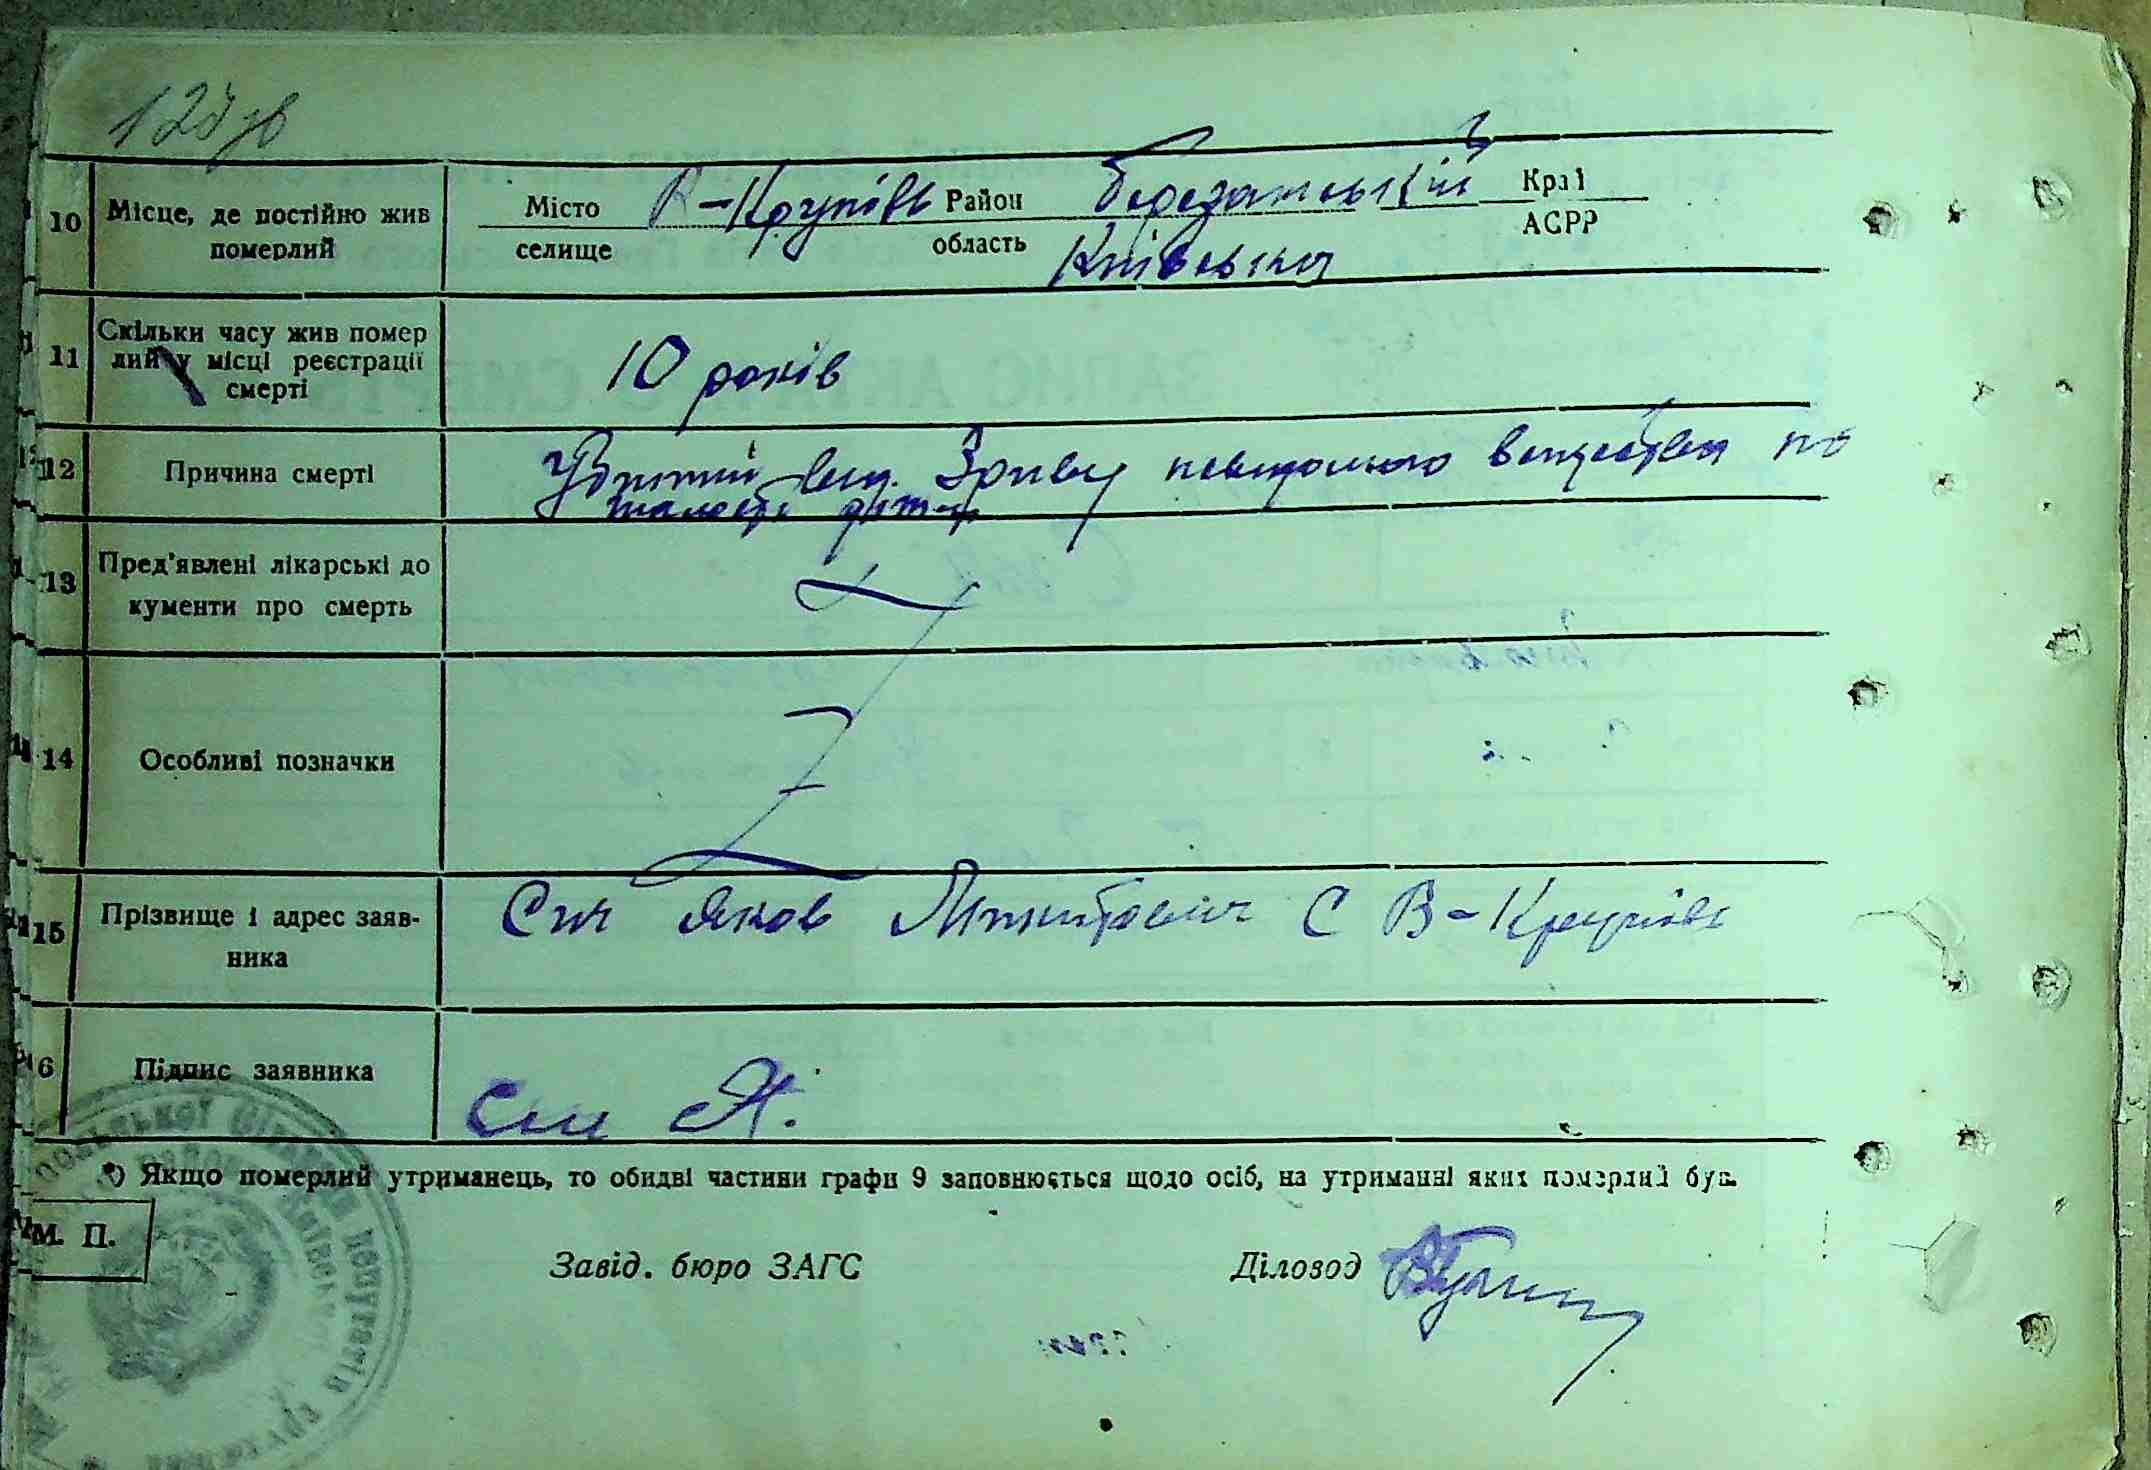 10 Місце, де постійно жив померлий
Місто селище В-Крупівь Район область Березанський Київська Край АСРР
11 Скільки часу жив помер лий у місці реєстрації смерті
10 років
12 Причина смерті
Убитий від. Зриву невідомого по
13 Пред'явлені лікарські до кументи про смерть
14 Особливі позначки
15 Прізвище і адрес заяв- ника
Сич Яков С В-Крупівь
16 Підпис заявника
Сич Я.
*) Якщо померлий утриманець, то обидві частини графи 9 заповнюється щодо осіб, на утриманні яких померлий був.
М. П.
Завід. бюро ЗАГС Діловод